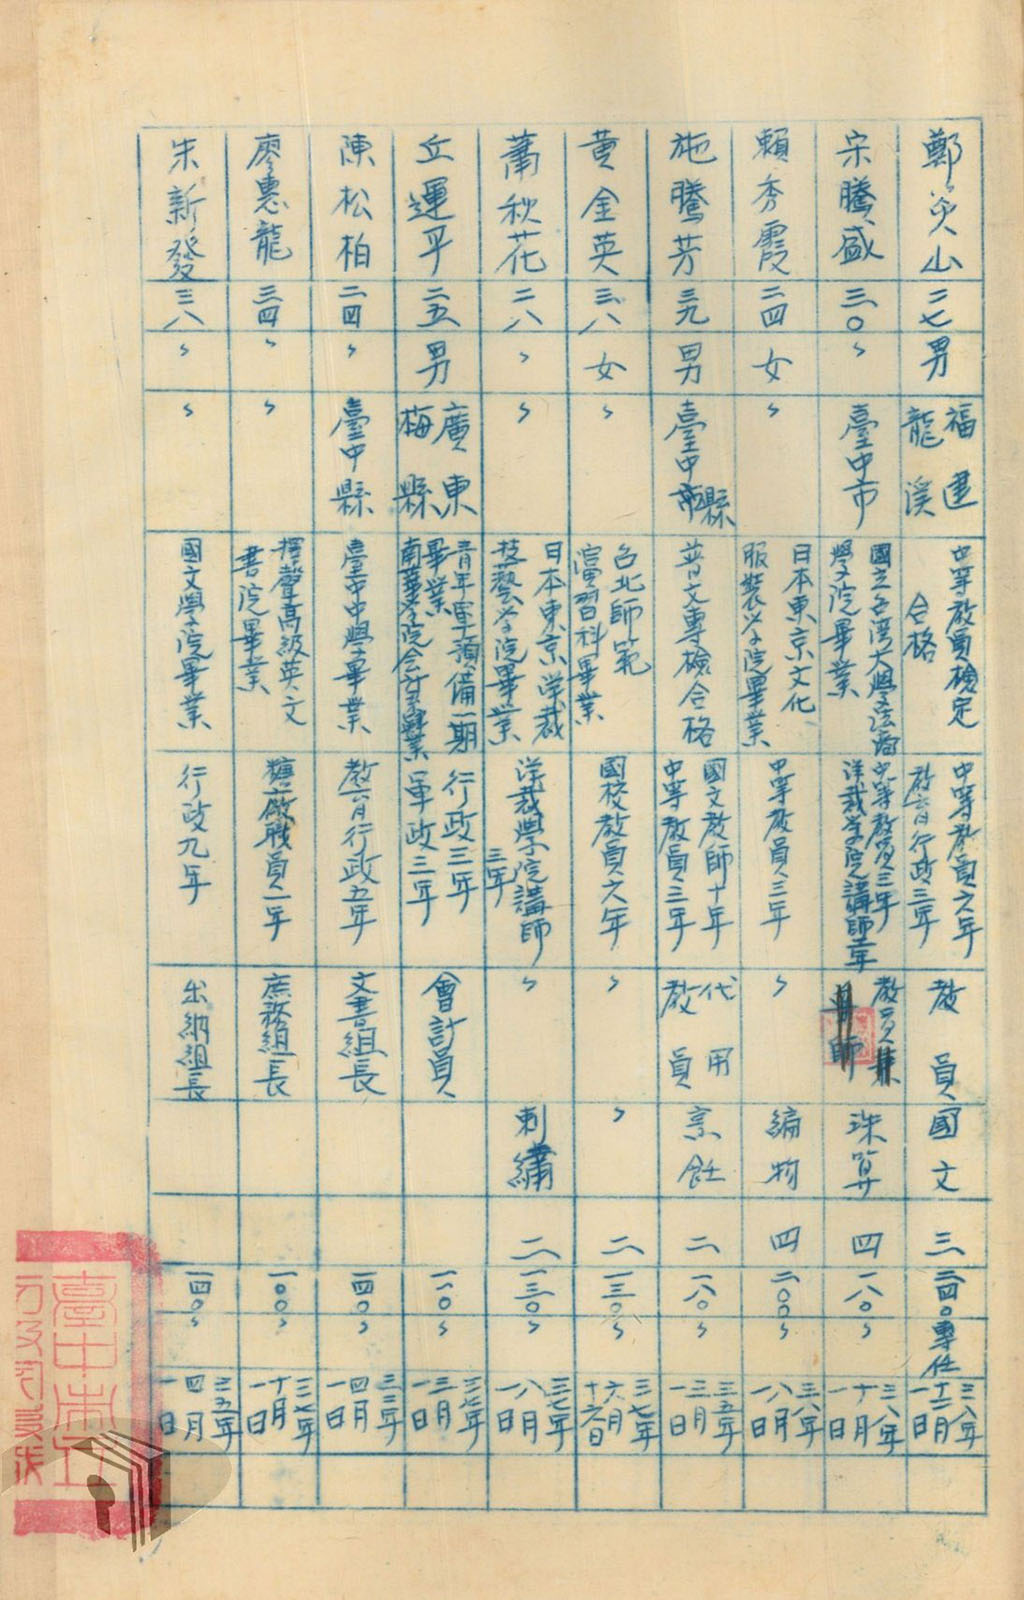 鄭炎山
二七
男
福建
龍溪
中等教員檢定
合格
中等教員六年
教育行政三年
教員
國文
三
二四〇
專任
三八年
十二月
一日
宋騰盛
三〇
〃
臺中市
國立台灣大學法商
學院畢業
中等教員三年
洋裁学院講師二年
教員兼
導師
珠算
四
一八〇
〃
三八年
十月
一日
賴秀霞
二四
女
〃
日本東京文化
服裝学院畢業
中等教員三年
〃
編物
四
二〇〇
〃
三八年
八月
一日
施騰芳
三九
男
臺中市縣
普文專檢合格
國文教師十年
中等教員三年
代用
教員
烹飪
二
一八〇
〃
三五年
三月
一日
黃金英
三八
女
〃
台北師範
演習科畢業
國校教員六年
〃
〃
二
一三〇
〃
三七年
六月
十六日
蕭秋花
二八
〃
〃
日本東京洋裁
技藝学院畢業
洋裁學院講師
三年
〃
刺繡
二
一三〇
〃
三七年
八月
一日
丘運平
二五
男
廣東
梅縣
青年軍預備一期
畢業
南華学院會計系肄業
行政三年
軍政三年
會計員
一一〇
〃
三七年
三月
一日
陳松柏
二四
〃
臺中縣
臺中中學畢業
教育行政五年
文書組長
一四〇
〃
三三年
四月
一日
廖惠龍
三四
〃
〃
擇聲高級英文
書院畢業
糖廠職員一年
庶務組長
一〇〇
〃
三七年
十月
一日
朱新發
三八
〃
〃
國文學院畢業
行政九年
出納組長
一四〇
〃
三五年
四月
一日
臺中市立